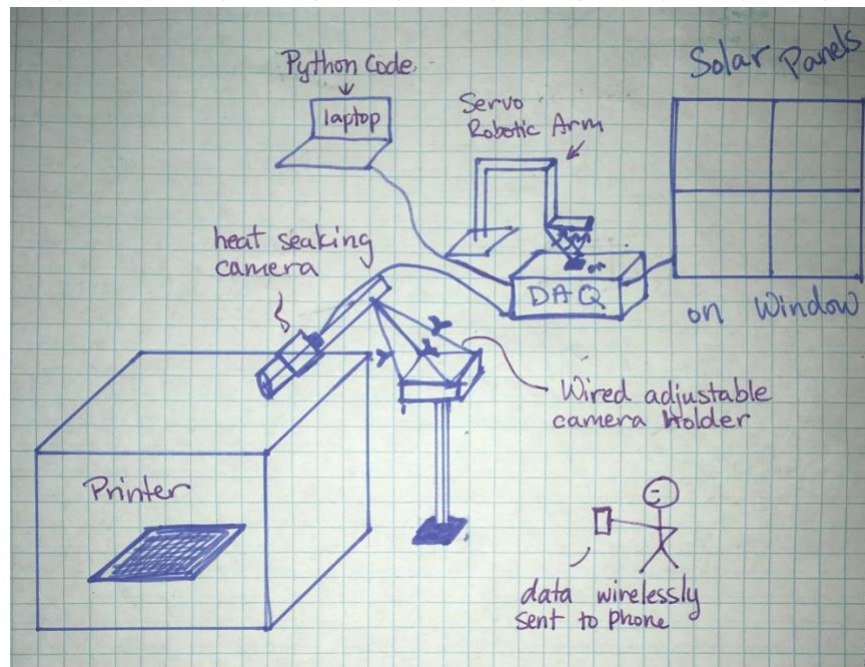 Python Code
laptop
Servo
Robotic Arm
Solar Panels
heat seaking
camera
DAQ
on
on Window
Wired adjustable
camera Holder
Printer
data wirelessly
sent to phone